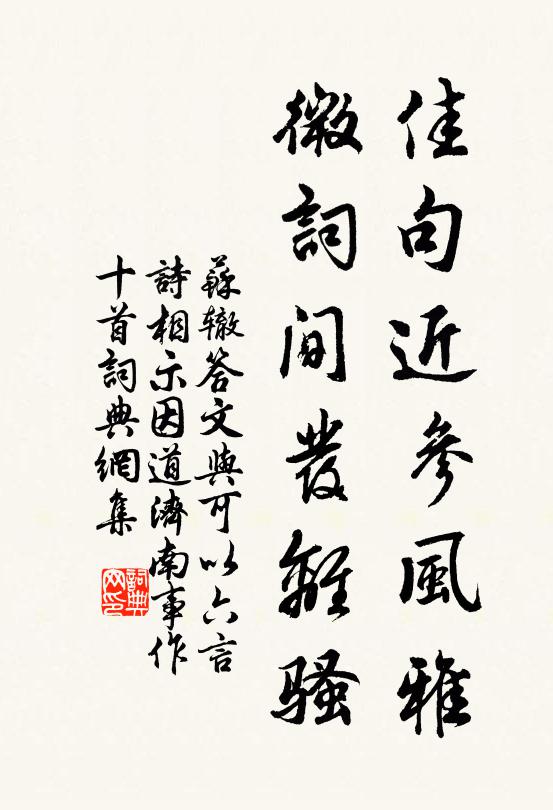 佳句近參風雅
微詞間發離騷
蘇轍答文與可以六言
詩相示因道濟南事作
十首詞典網集
詞典網印